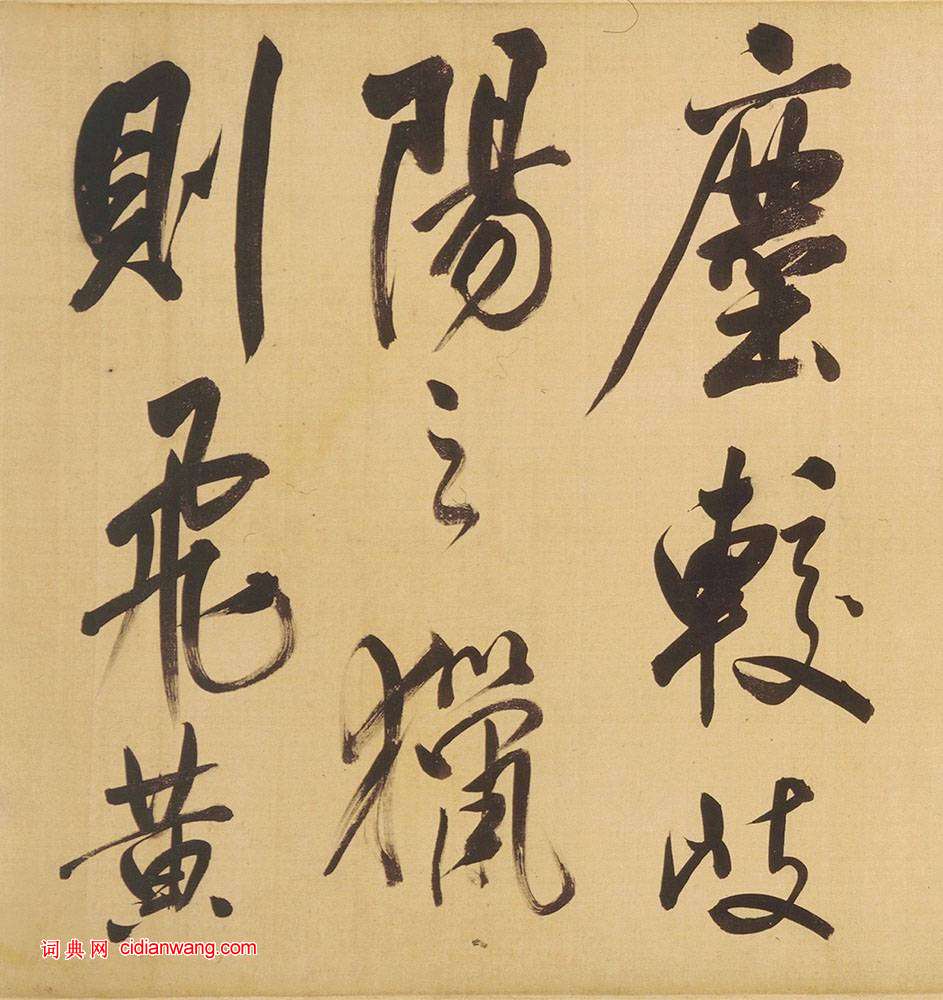 塵較岐
陽之獵
則飛黃
词典网 cidianwang.com